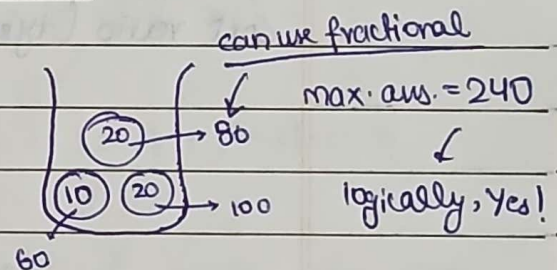 can use fractional
max. ans. = 240
20 → 80
10 20 → 100
logically, Yes!
60